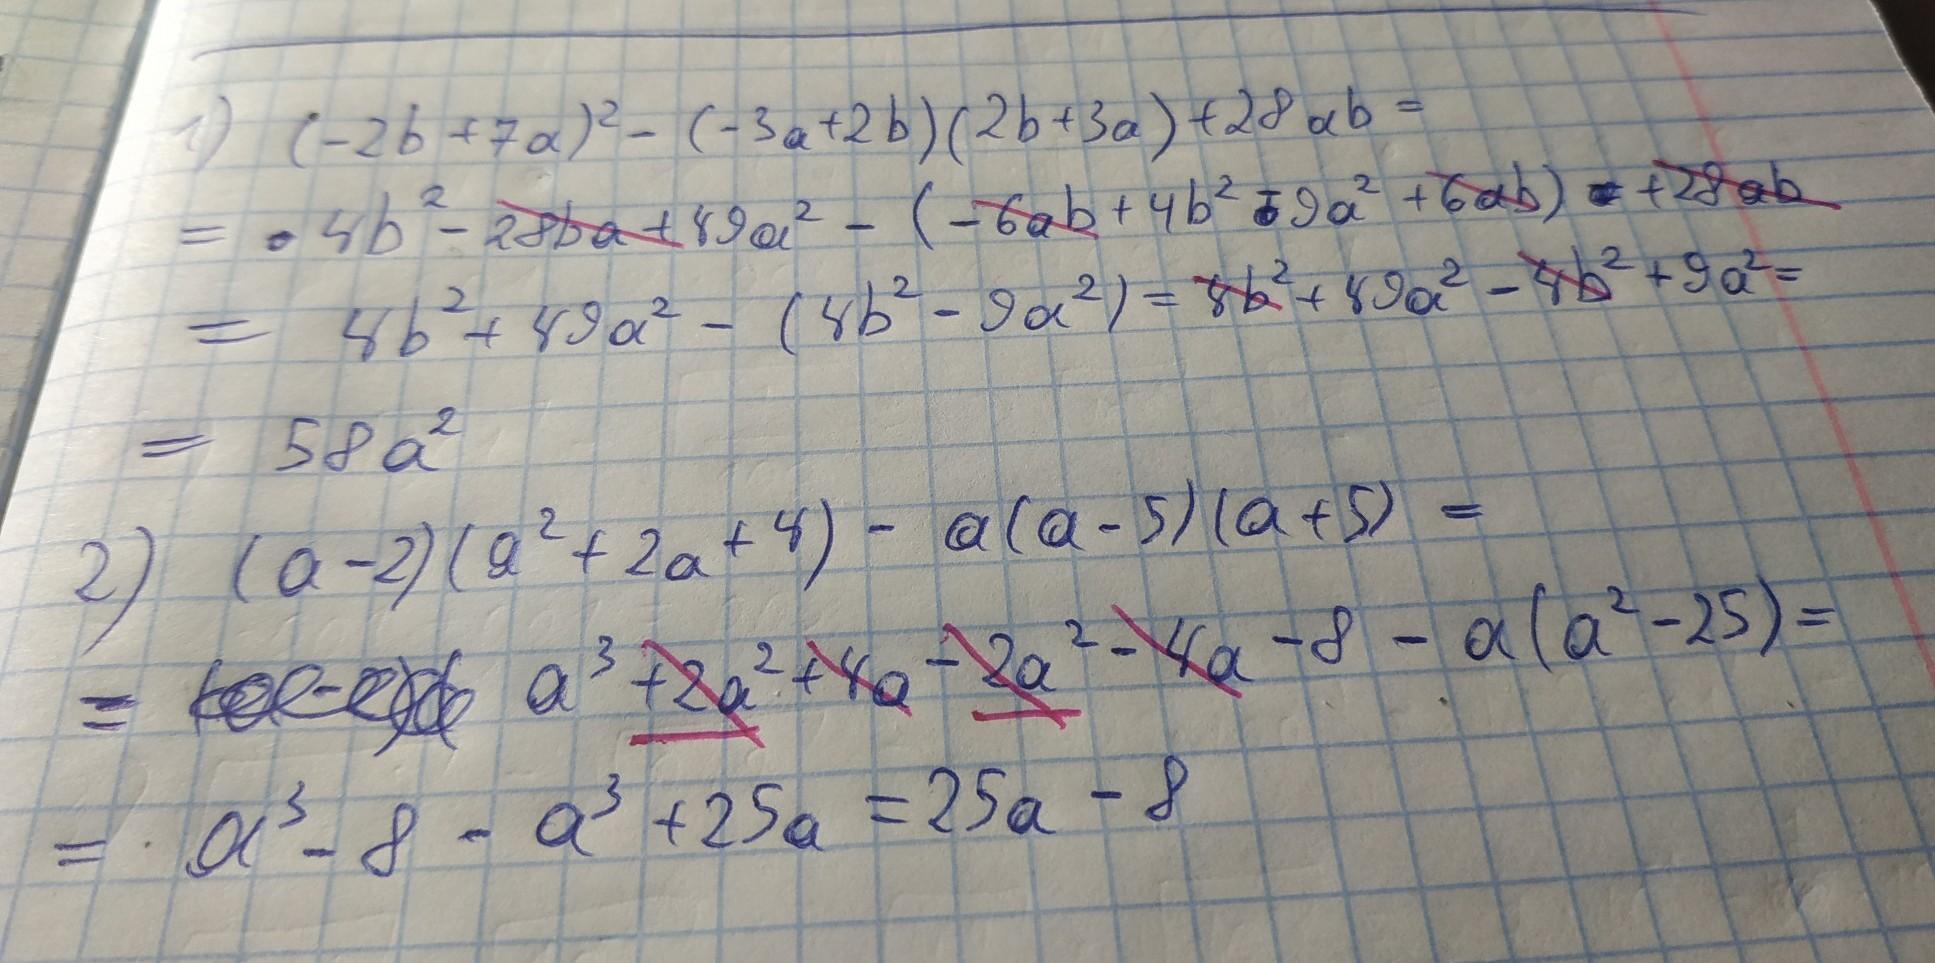 1) (-2b+7a)² - (-3a+2b)(2b+3a)+28ab=
= 4b² - 28ba + 49a² - (-6ab+4b²-9a²+6ab) +28ab
= 4b²+49a² - (4b²-9a²) = 4b²+49a² - 4b²+9a²=
= 58a²
2) (a-2)(a²+2a+4) - a(a-5)(a+5) =
= a³+2a²+4a-2a²-4a-8 - a(a²-25)=
= a³-8 - a³+25a =25a-8